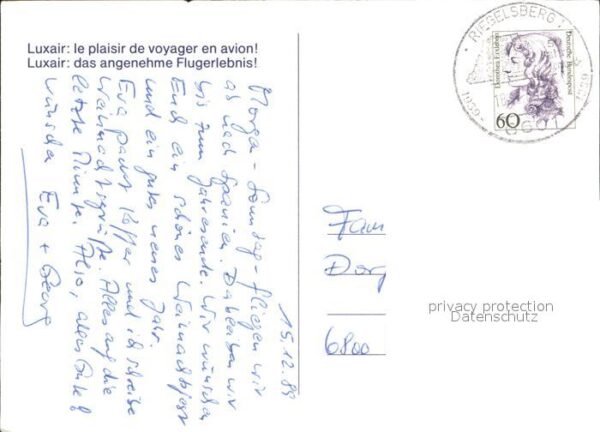 Luxair: le plaisir de voyager en avion!
Luxair: das angenehme Flugerlebnis!
15.12.89
Morgen - Sonntag - fliegen wir
ab nach Spanien. Da bleiben wir
bis zum Jahresende. Wir wünschen
Euch ein schönes Weihnachtsfest
und ein gutes neues Jahr.
Eva packt Koffer und ich schreibe
Weihnachtsgrüße. Alles auf die
letzte Minute. Also, alles Gute!
wünschen Eva + Georg
RIEGELSBERG 1
1939
6601
Deutsche Bundespost
Dorothea Erxleben
60
Fam
Dorg
6800
privacy protection
Datenschutz